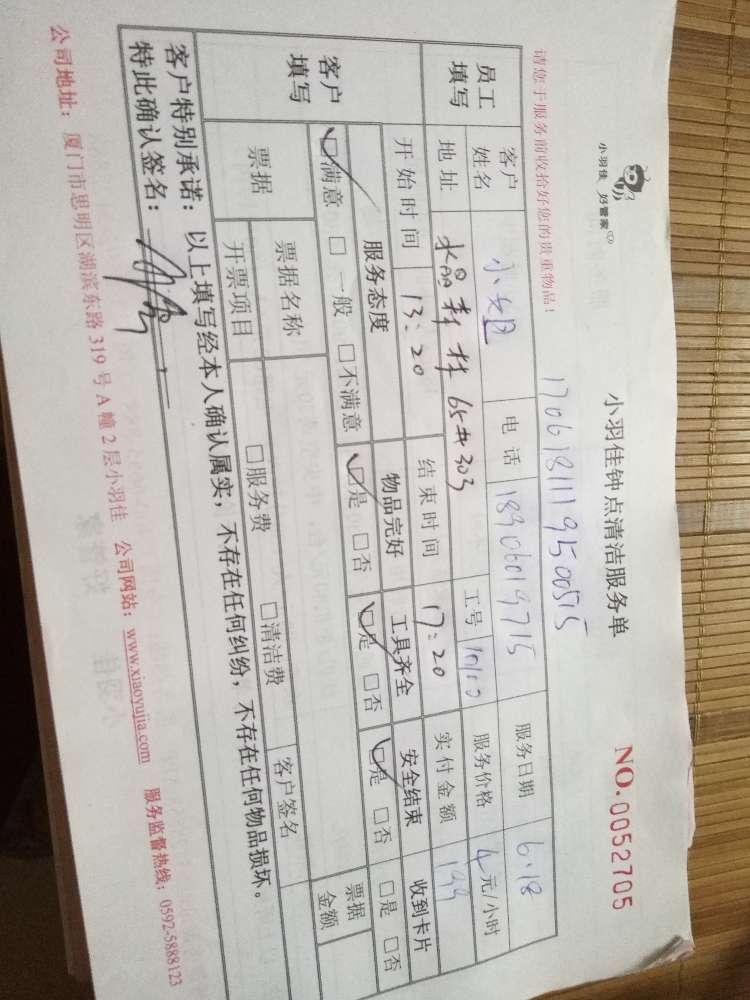 小羽佳 好管家
小羽佳钟点清洁服务单
NO.0052705
请您于服务前收拾好您的贵重物品!
员工填写 客户姓名 小姐 电话 18906019715 服务日期 6.18
地址 65#303 工号 服务价格 元/小时
开始时间 13:20 结束时间 17:20 实付金额
客户填写 服务态度 物品完好 工具齐全 安全结束 收到卡片
☑满意 □一般 □不满意 ☑是 □否 ☑是 □否 ☑是 □否 □是 □否
票据 票据名称 票据金额
开票项目 □服务费 □清洁费 客户签名
客户特别承诺:以上填写经本人确认属实,不存在任何纠纷,不存在任何物品损坏。
特此确认签名:
公司地址:厦门市思明区湖滨东路319号A幢2层小羽佳 公司网站:www.xiaoyujia.com 服务监督热线:0592-5888123